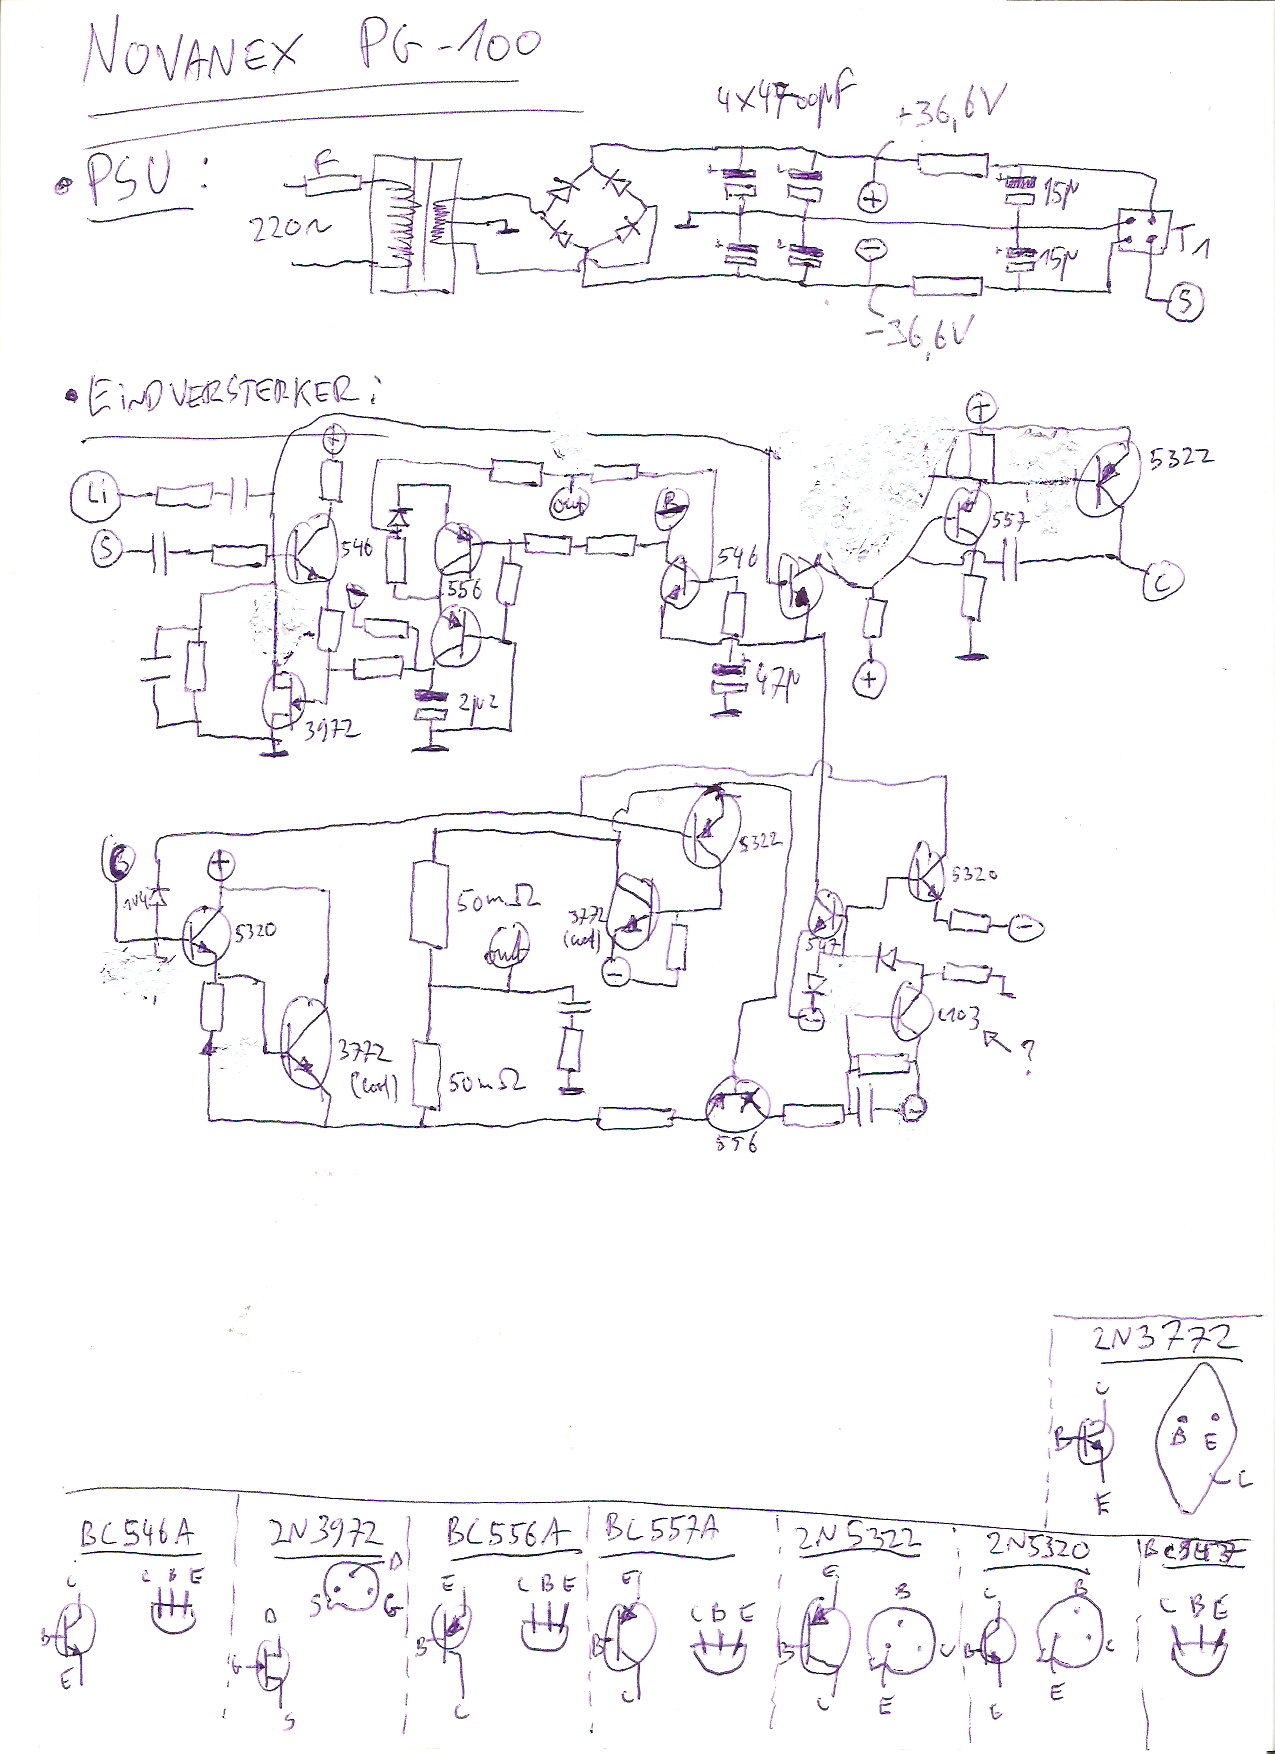 NOVANEX PG-100
4x4700µF
+36,6V
• PSU:
F
220~
+
15µ
-
15µ
T1
S
-36,6V
• EINDVERSTERKER:
+
+
5322
Li
out
B
557
S
546
556
546
C
47µ
+
2µ2
3972
5322
5320
+
1V4
50mΩ
3772
5320
out
547
-
-
-
C103
?
3772
50mΩ
-
556
2N3772
C
B
B E
C
E
BC546A
2N3972
BC556A
BC557A
2N5322
2N5320
C
C B E
D
D
S
G
E
C B E
E
C B E
E
B
C
B
C B E
B
G
B
B
B
C
B
C
E
S
C
C
C
E
E
E